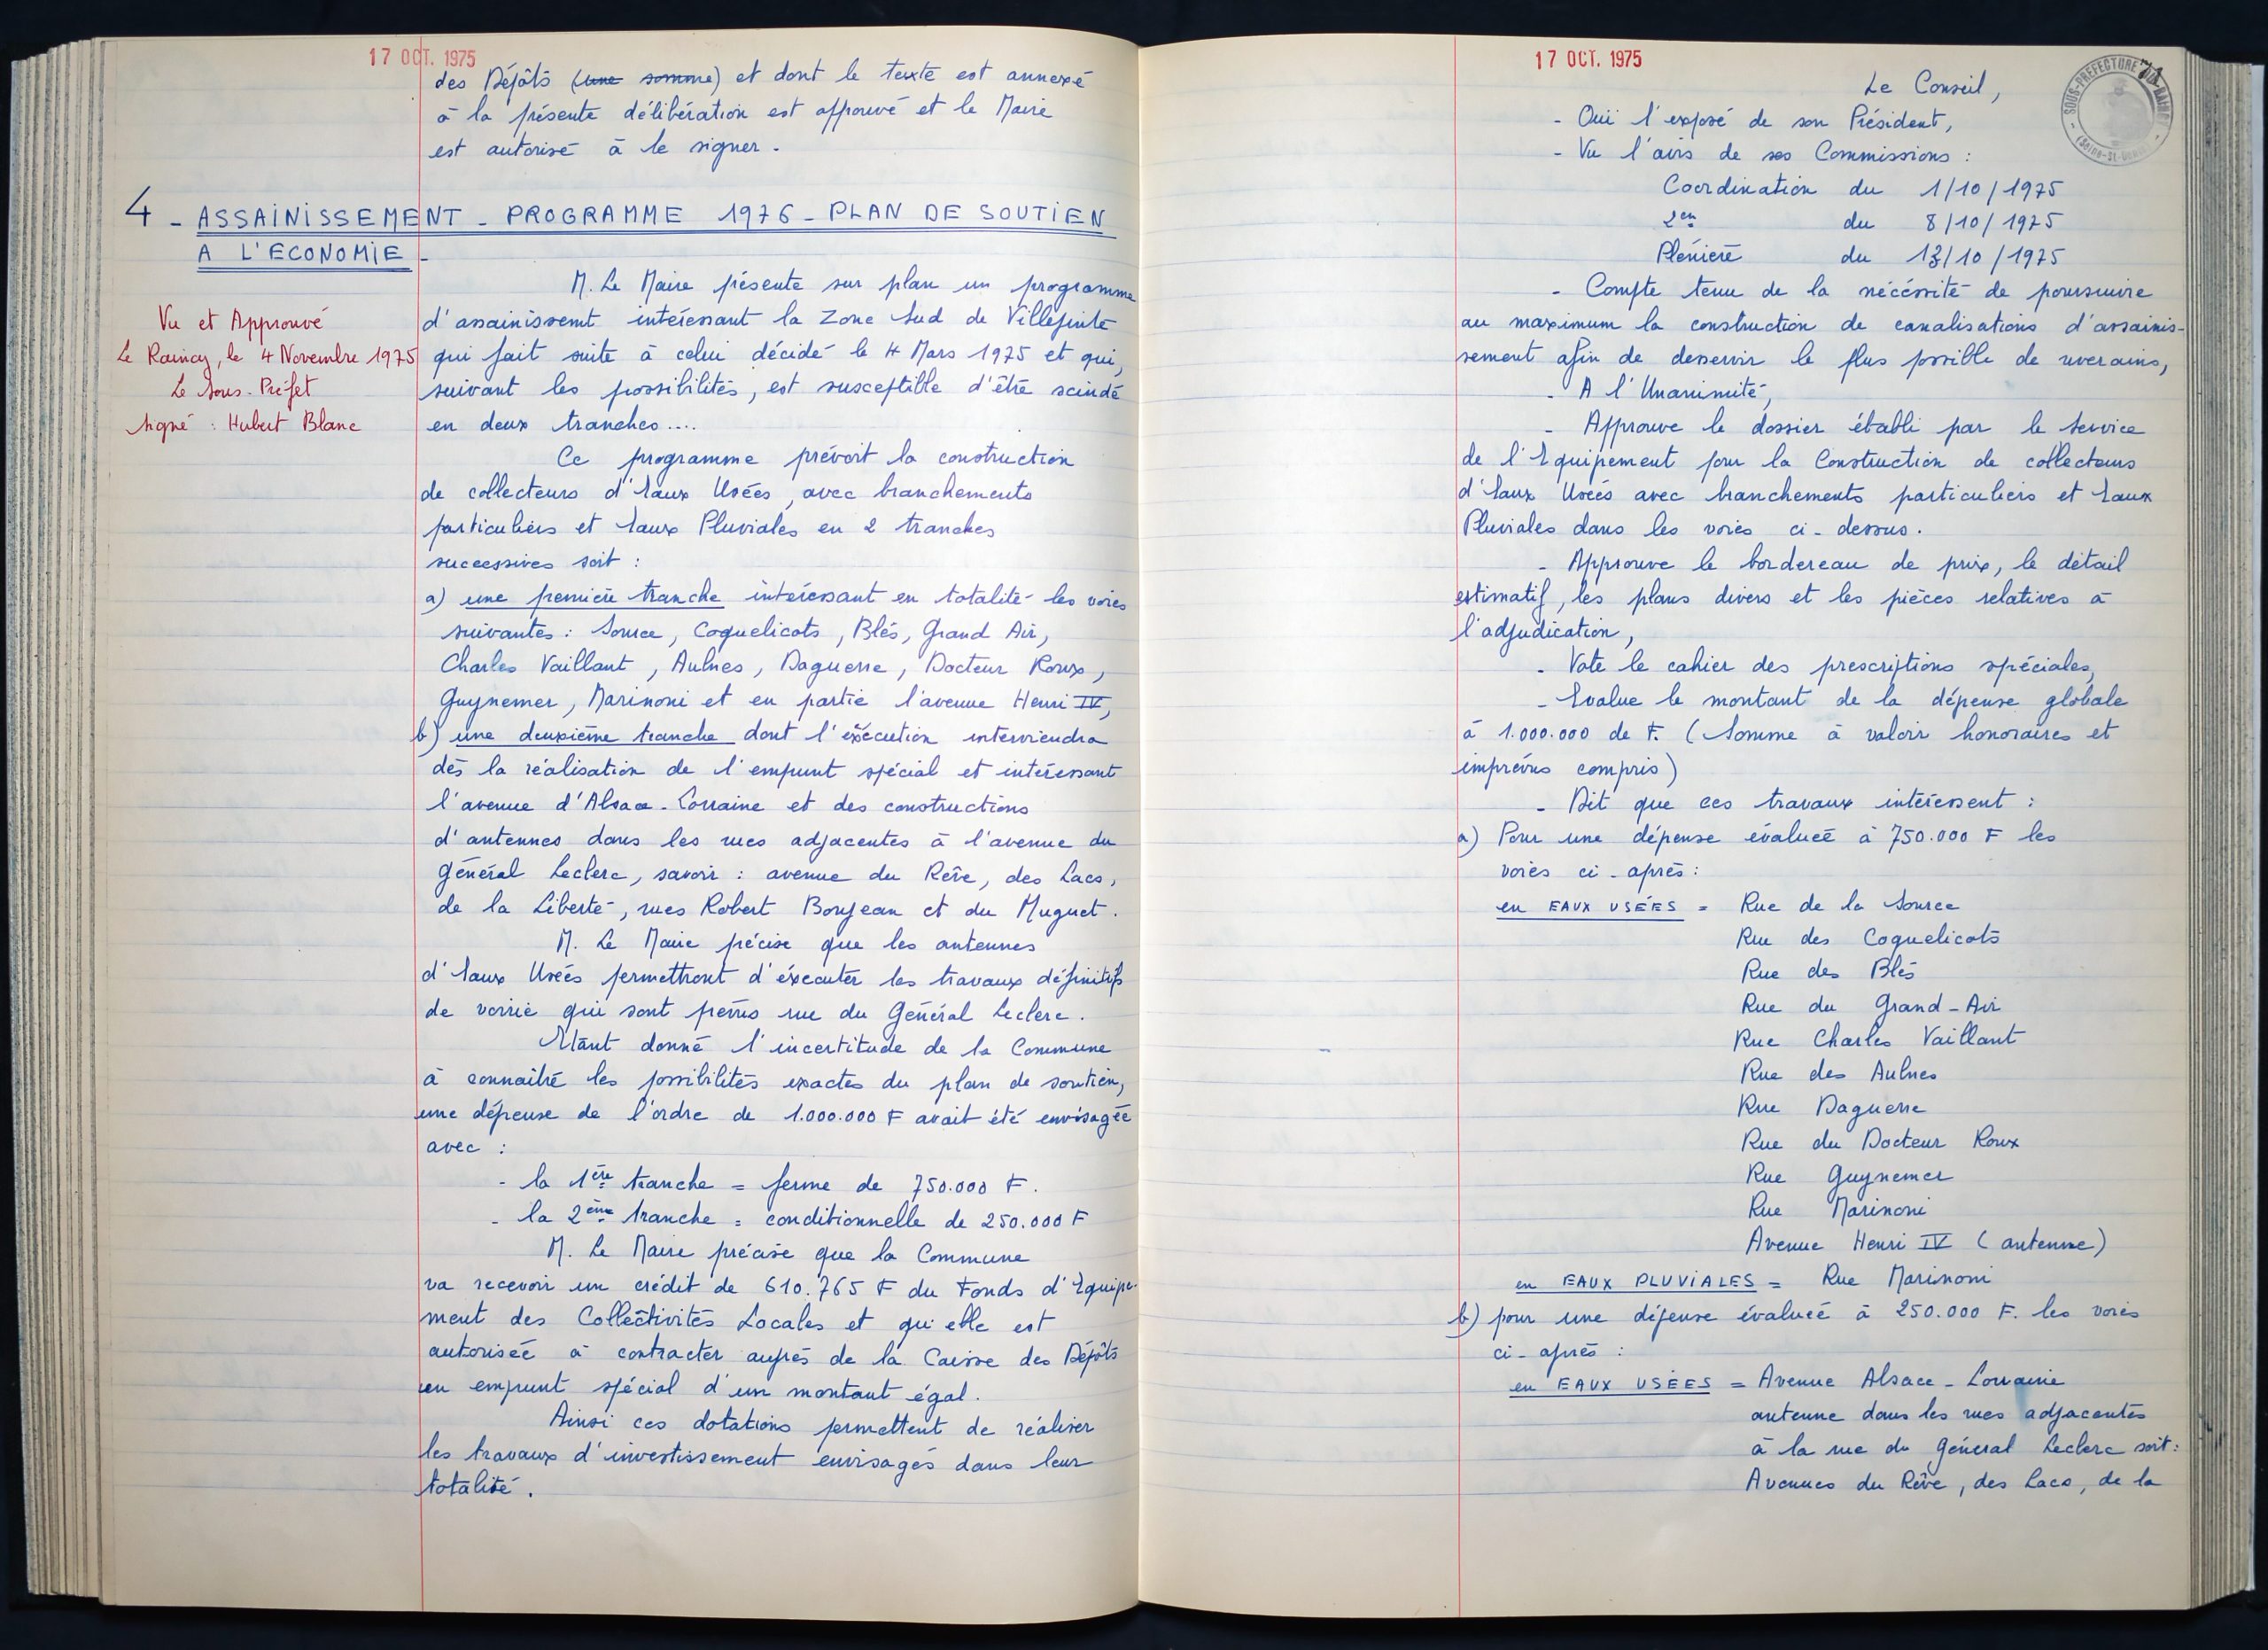 17 OCT. 1975
des Dépôts (une somme) et dont le texte est annexé
à la présente délibération est approuvé et le Maire
est autorisé à le signer.
4 - ASSAINISSEMENT - PROGRAMME 1976 - PLAN DE SOUTIEN
A L'ECONOMIE -
Vu et Approuvé
Le Raincy, le 4 Novembre 1975
Le Sous-Préfet
signé : Hubert Blanc
M. Le Maire présente sur plan un programme
d'assainissemt intéressant la Zone Sud de Villepinte
qui fait suite à celui décidé le 4 Mars 1975 et qui,
suivant les possibilités, est susceptible d'être scindé
en deux tranches....
Ce programme prévoit la construction
de collecteurs d'Eaux Usées, avec branchements
particuliers et Eaux Pluviales en 2 tranches
successives soit :
a) une première tranche intéressant en totalité les voies
suivantes : Source, Coquelicots, Blés, Grand Air,
Charles Vaillant, Aulnes, Daguerre, Docteur Roux,
Guynemer, Marinoni et en partie l'avenue Henri IV,
b) une deuxième tranche dont l'éxécution interviendra
dès la réalisation de l'emprunt spécial et intéressant
l'avenue d'Alsace-Lorraine et des constructions
d'antennes dans les rues adjacentes à l'avenue du
Général Leclerc, savoir : avenue du Rêve, des Lacs,
de la Liberté, rues Robert Bonjean et du Muguet.
M. Le Maire précise que les antennes
d'Eaux Usées permettront d'éxecuter les travaux définitifs
de voirie qui sont prévus rue du Général Leclerc.
Etant donné l'incertitude de la Commune
à connaitre les possibilités exactes du plan de soutien,
une dépense de l'ordre de 1.000.000 F avait été envisagée
avec :
- la 1ère tranche = ferme de 750.000 F.
- la 2ème tranche = conditionnelle de 250.000 F
M. Le Maire précise que la Commune
va recevoir un crédit de 610.765 F du Fonds d'Equipe-
ment des Collectivités Locales et qu'elle est
autorisée à contracter auprès de la Caisse des Dépôts
un emprunt spécial d'un montant égal.
Ainsi ces dotations permettent de réaliser
les travaux d'investissement envisagés dans leur
totalité.
17 OCT. 1975
SOUS-PREFECTURE DU RAINCY
(Seine-St-Denis)
Le Conseil,
- Ouï l'exposé de son Président,
- Vu l'avis de ses Commissions :
Coordination du 1/10/1975
2en du 8/10/1975
Plénière du 13/10/1975
- Compte tenu de la nécéssité de poursuivre
au maximum la construction de canalisations d'assainis-
sement afin de desservir le plus possible de riverains,
- A l'Unanimité,
- Approuve le dossier établi par le Service
de l'Equipement pour la Construction de collecteurs
d'Eaux Usées avec branchements particuliers et Eaux
Pluviales dans les voies ci-dessus.
- Approuve le bordereau de prix, le détail
estimatif, les plans divers et les pièces relatives à
l'adjudication,
- Vote le cahier des prescriptions spéciales,
- Evalue le montant de la dépense globale
à 1.000.000 de F. (Somme à valoir honoraires et
imprévus compris)
- Dit que ces travaux intéressent :
a) Pour une dépense évaluée à 750.000 F les
voies ci-après :
en EAUX USÉES = Rue de la Source
Rue des Coquelicots
Rue des Blés
Rue du Grand-Air
Rue Charles Vaillant
Rue des Aulnes
Rue Daguerre
Rue du Docteur Roux
Rue Guynemer
Rue Marinoni
Avenue Henri IV (antenne)
en EAUX PLUVIALES = Rue Marinoni
b) pour une dépense évaluée à 250.000 F. les voies
ci-après :
en EAUX USÉES = Avenue Alsace-Lorraine
antenne dans les rues adjacentes
à la rue du Général Leclerc soit :
Avenues du Rêve, des Lacs, de la